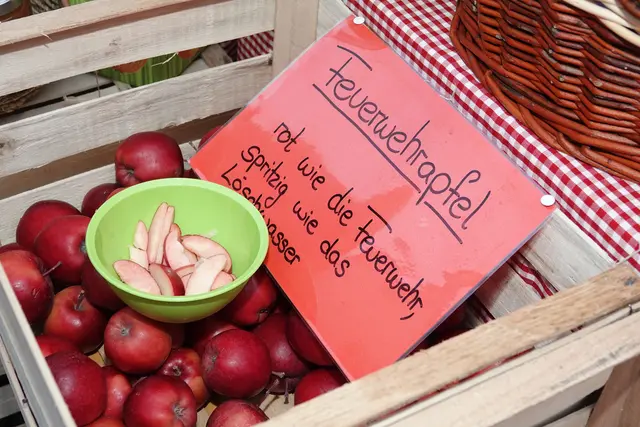 Feuerwehrapfel
rot wie die Feuerwehr,
spritzig wie das
Löschwasser